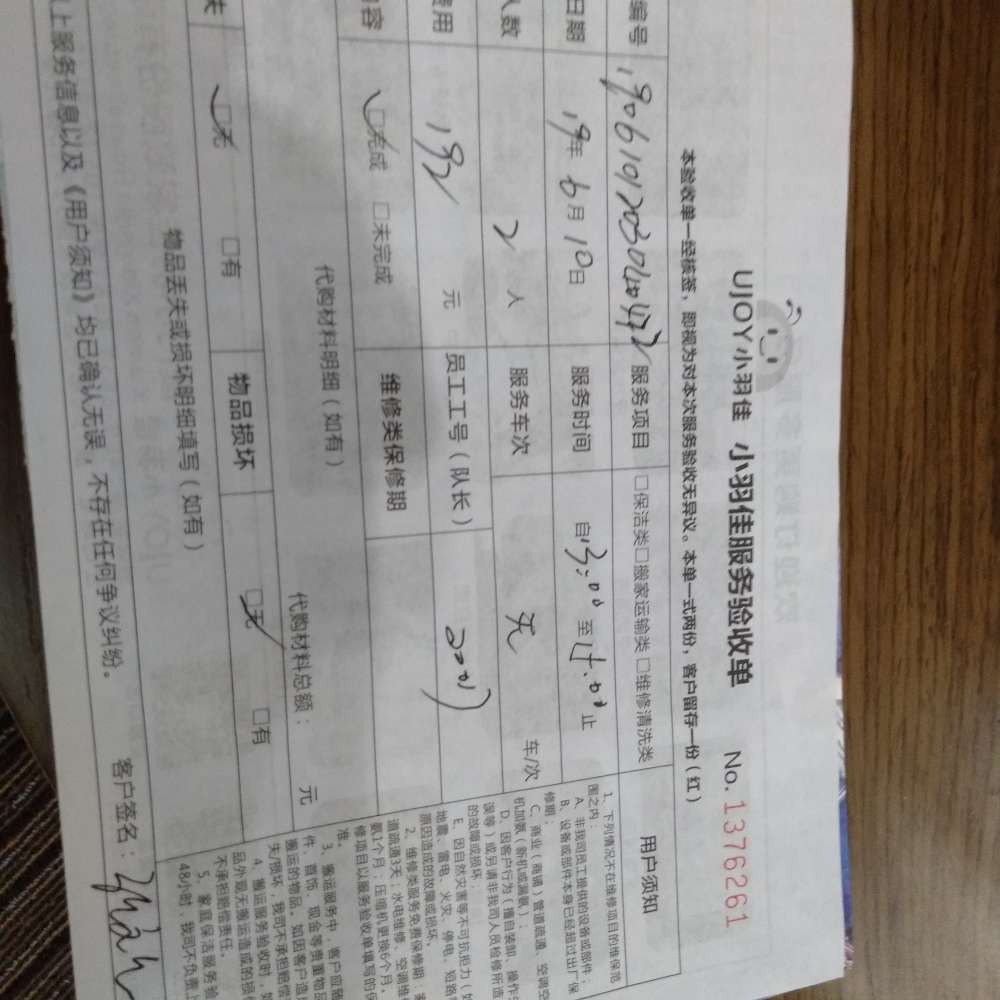 UJOY小羽佳 小羽佳服务验收单 No. 1376261
本验收单一经核签，即视为对本次服务验收无异议。本单一式两份，客户留存一份（红）
编号 服务项目 □保洁类□搬家运输类□维修清洗类
日期 19年6月10日 服务时间 自13:00至17:00止
人数 2人 服务车次 无 车/次
费用 192元 员工工号（队长）
内容 □完成 □未完成 维修类保修期
代购材料明细（如有） 代购材料总额： 元
失 □无 □有 物品损坏 □无 □有
物品丢失或损坏明细填写（如有）
上服务信息以及《用户须知》均已确认无误，不存在任何争议纠纷。 客户签名：
用户须知
1、下列情况不在维修项目的维保范
围之内：
A、非我司员工提供的设备或部件；
B、设备或部件本身已经超过出厂保
修期；
C、商业（商铺）管道疏通、空调空
机加氨（新机或漏氨）；
D、因客户行为（擅自装卸、操作失
误等）或另请非我司人员检修所造
的故障或损坏；
E、因自然灾害等不可抗拒力（如
地震、雷电、火灾、停电、短路
原因造成的故障或损坏。
2、维修类服务免费保修期：家
道疏通3天；水电维修、空调维
氨1个月；压缩机更换6个月，
修项目以服务验收单填写的保
准。
3、搬运服务中，客户应
件、首饰、现金等贵重物品
搬运的物品。如因客户造
失/损坏，我司不承担赔偿
4、搬运服务验收时，如
品外观无搬运造成的损
不承担赔偿责任。
5、家庭保洁服务验
48小时，我司不负责上